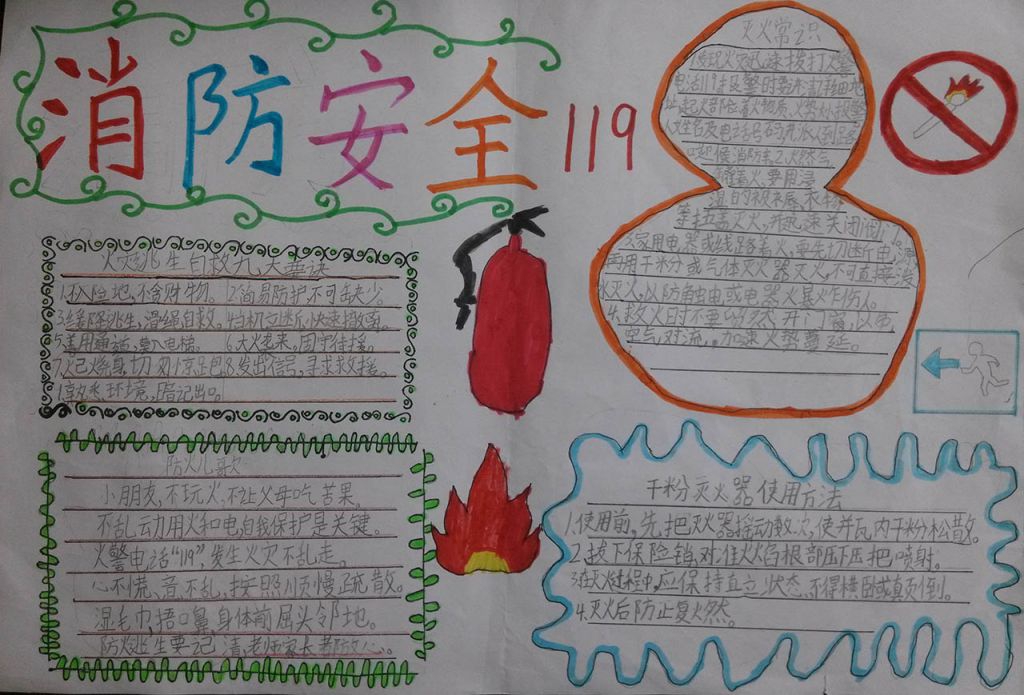 消防安全 119
火灾逃生自救九大要诀
1.入险地,不舍财物。2简易防护,不可缺少。
3缓降逃生,滑绳自救。4当机立断,快速撤离。
5善用通道,莫入电梯。6.大火袭来,固守待援。
7火已烧身,切勿惊 8发出信号,寻求救援。
熟悉环境,暗记出口。
防火儿歌
小朋友,不玩火.不让父母吃苦果。
不乱动用火和电,自我保护是关键。
火警电话“119”,发生火灾不乱走。
心不慌、音不乱,按照顺 慢疏散。
湿毛巾捂口鼻,身体前屈头邻地。
防火逃生要记清,老师家长都放心。
灭火常识
发现火灾迅速拨打火警
电话119.报警时要 详细地
址 起火部 着火物质 火势 报警
人姓名及电话号码,并派人到路
口迎候消防车2.
着火,要用浸
湿的被褥
盖灭火,并迅速关闭阀门。
3.家用电器或线路着火,要先切断电
再用干粉或气体灭火器灭火,不可直接泼
水灭火,以防触电或电器火暴炸伤人。
4.救火时不要 然开门窗,以免
空气对流,加速火势蔓延。
干粉灭火器使用方法
1.使用前,先把灭火器摇动数次,使并瓦内干粉松散。
2.拔下保险销,对准火焰根部压下压把喷射。
3.在 过程中,应保持直立状态,不得横卧或真到倒。
4.灭火后防止复火然。